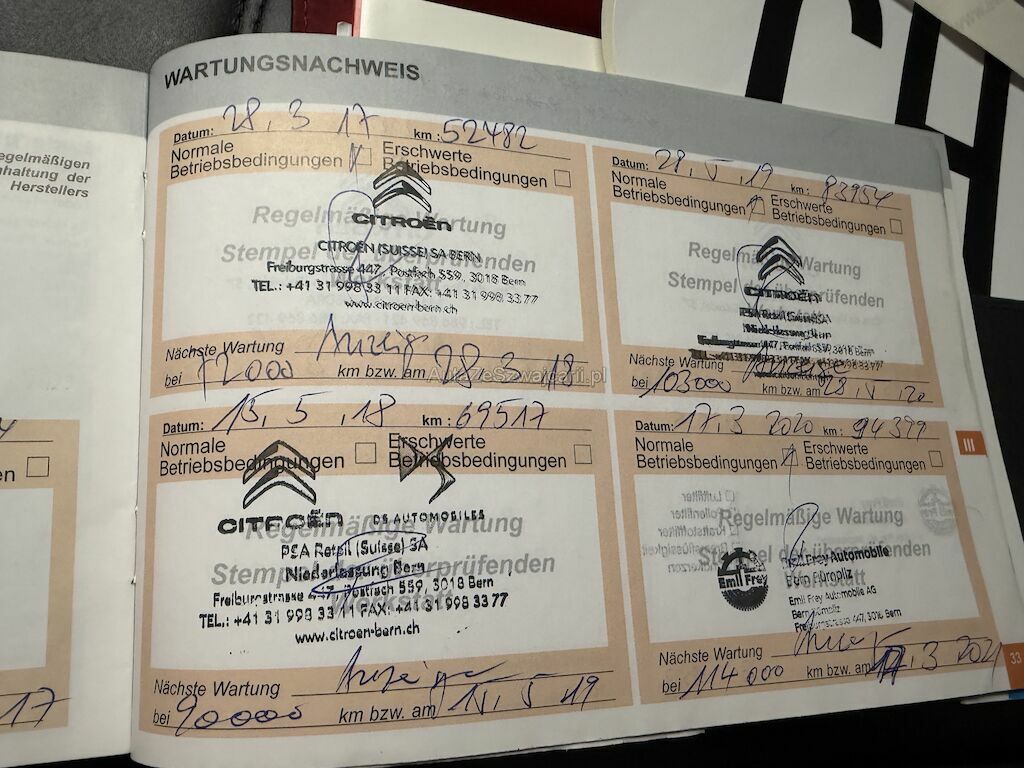 egelmäßigen
haltung der
Herstellers
en
17
WARTUNGSNACHWEIS
Datum: 28. 3 17 km : 52482
Normale Betriebsbedingungen Erschwerte Betriebsbedingungen
Regelmäßige Wartung
Stempel der überprüfenden
CITROËN
CITROËN (SUISSE) SA BERN
Freiburgstrasse 447, Postfach 559, 3018 Bern
TEL.: +41 31 998 33 11 FAX: +41 31 998 33 77
www.citroen-bern.ch
Nächste Wartung Anzeige
bei 72000 km bzw. am 28 3 18
Datum: 15. 5 .18 km : 69517
Normale Betriebsbedingungen Erschwerte Betriebsbedingungen
CITROËN DS AUTOMOBILES
Regelmäßige Wartung
Stempel der überprüfenden
Werkstatt
PSA Retail (Suisse) SA
Niederlassung Bern
Freiburgstrasse 447, Postfach 559, 3018 Bern
TEL.: +41 31 998 33 11 FAX: +41 31 998 33 77
www.citroen-bern.ch
Nächste Wartung Anzeige
bei 90000 km bzw. am 15. 5 19
Datum: 28. 5 .19 km : 83954
Normale Betriebsbedingungen Erschwerte Betriebsbedingungen
Regelmäßige Wartung
Stempel der überprüfenden
CITROËN
Nächste Wartung Anzeige
bei 103000 km bzw. am 28. 5. 20
Datum: 17. 3 2020 km : 94399
Normale Betriebsbedingungen Erschwerte Betriebsbedingungen
Regelmäßige Wartung
Stempel der überprüfenden
Werkstatt
Emil Frey
Emil Frey Automobile
Emil Frey Automobile AG
Freiburgstrasse 447, 3018 Bern
Nächste Wartung
bei 114000 km bzw. am 17. 3 2021
III
33
AutozeSzwajcarii.pl